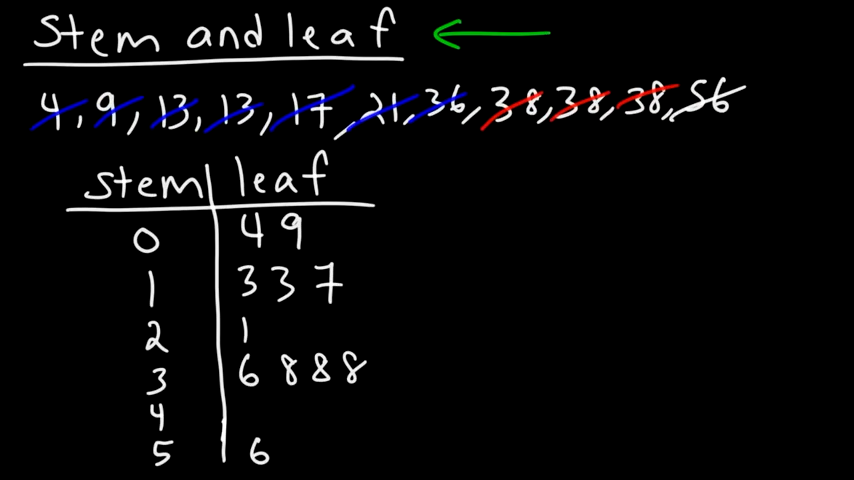 Stem and leaf
4, 9, 13, 13, 17, 21, 36, 38, 38, 38, 56
stem leaf
0 4 9
1 3 3 7
2 1
3 6 8 8 8
4
5 6